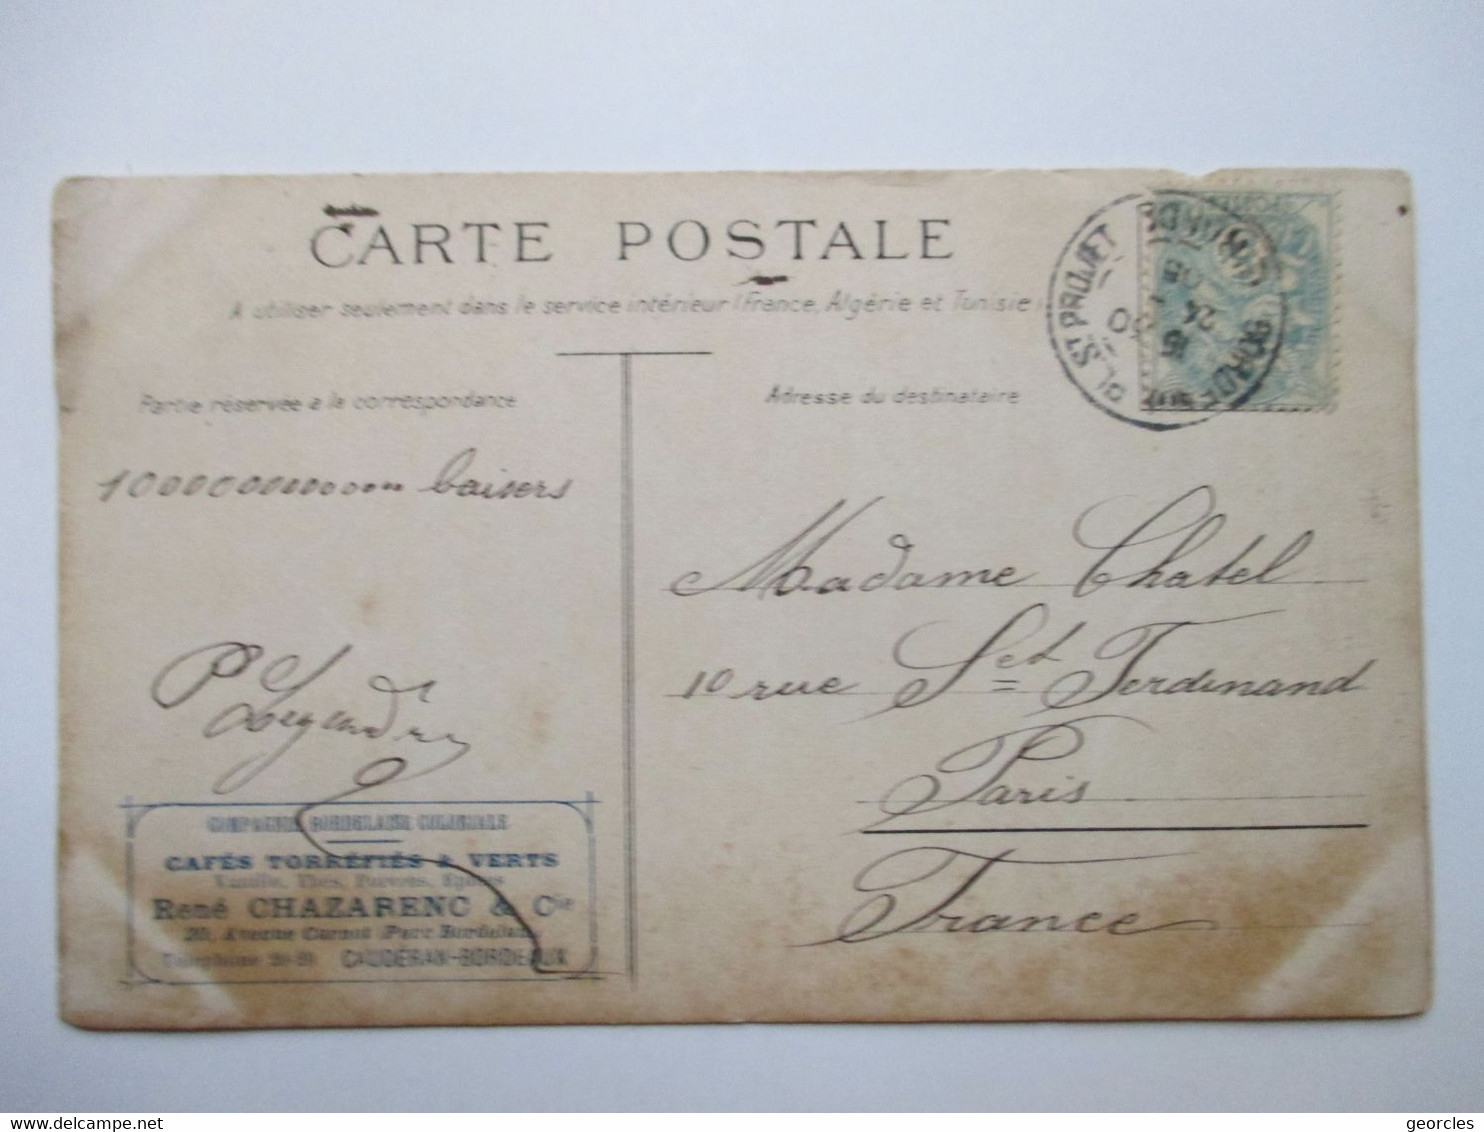 CARTE POSTALE
A utiliser seulement dans le service intérieur (France, Algérie et Tunisie)
Partie réservée a la correspondance
Adresse du destinataire
BORDEAUX PL. ST PROJET
GIRONDE
24
1000000000000 baisers
Madame Chatel
10 rue St Ferdinand
Paris
France
COMPAGNIE BORDELAISE COLONIALE
CAFÉS TORRÉFIÉS & VERTS
Vanille, Thés, Poivres,
René CHAZARENC & Cie
Avenue Carnot (Parc Bordelais)
Téléphone
CAUDÉRAN-BORDEAUX
georcles